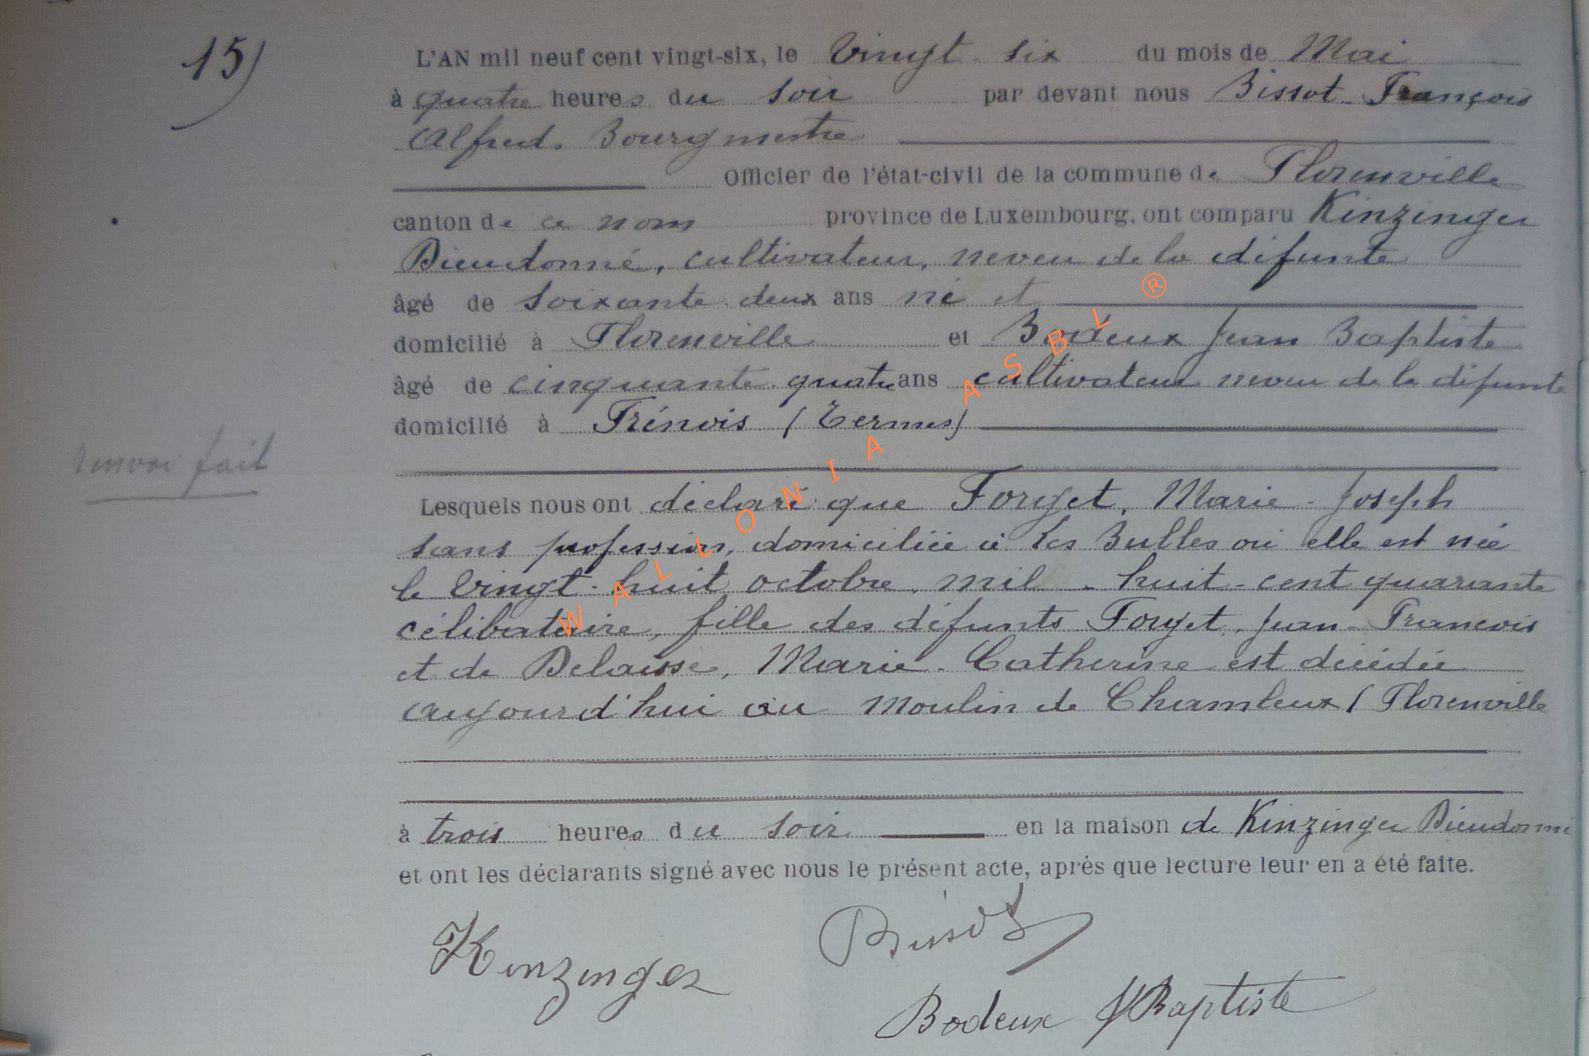 15)
L'AN mil neuf cent vingt-six, le Vingt six du mois de Mai
à quatre heures du soir par devant nous Bissot François
Alfred. Bourgmestre
Officier de l'état-civil de la commune de Florenville
canton de ce nom province de Luxembourg, ont comparu Kinzinger
Dieudonné, cultivateur, neveu de la défunte
âgé de soixante deux ans né et
domicilié à Florenville et Bodeux Jean Baptiste
âgé de cinquante quatre ans cultivateur neveu de la défunte
domicilié à Frénois (Termes)
renvoi fait
Lesquels nous ont déclaré que Forget, Marie-Joseph
sans profession, domiciliée à Les Bulles où elle est née
le Vingt-huit octobre mil-huit-cent quarante
célibataire, fille des défunts Forget, Jean-François
et de Delaisse, Marie-Catherine est décédée
aujourd'hui au Moulin de Chamleux (Florenville
à trois heures du soir en la maison de Kinzinger Dieudonné
et ont les déclarants signé avec nous le présent acte, après que lecture leur en a été faite.
Kinzinger Bissot
Bodeux J Baptiste
WALLONIA ASBL ®